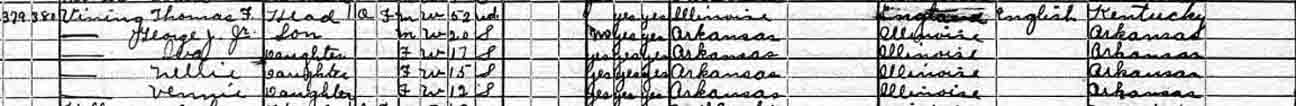 379 380 Vining Thomas F. Head O F M W 52 Wd yes yes Illinois England English Kentucky
— George J. Jr. Son M W 20 S no yes yes Arkansas Illinois Arkansas
— Daughter F W 17 S yes yes yes Arkansas Illinois Arkansas
— Nellie Daughter F W 15 S yes yes yes Arkansas Illinois Arkansas
— Vennie Daughter F W 12 S yes yes yes Arkansas Illinois Arkansas